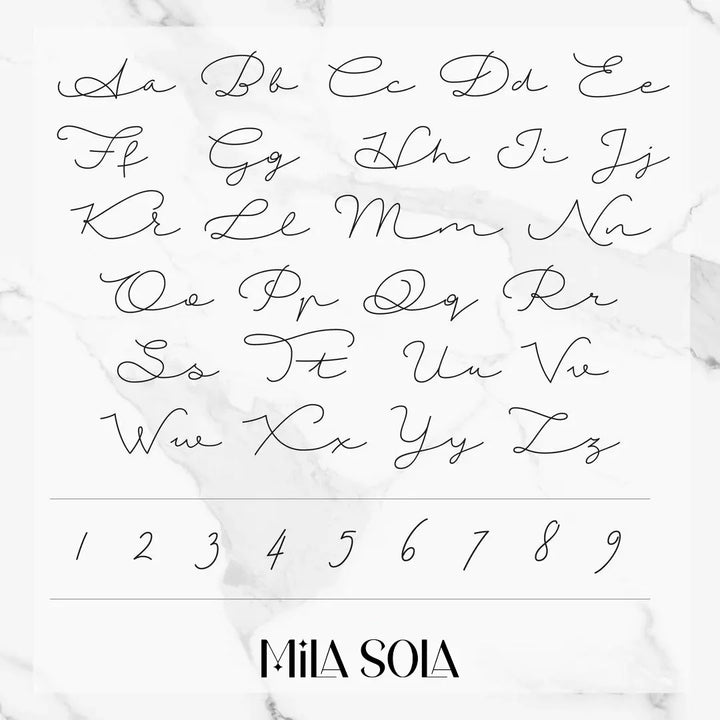 Aa Bb Cc Dd Ee
Ff Gg Hh Ii Jj
Kk Ll Mm Nn
Oo Pp Qq Rr
Ss Tt Uu Vv
Ww Xx Yy Zz
1 2 3 4 5 6 7 8 9
MiLA SOLA